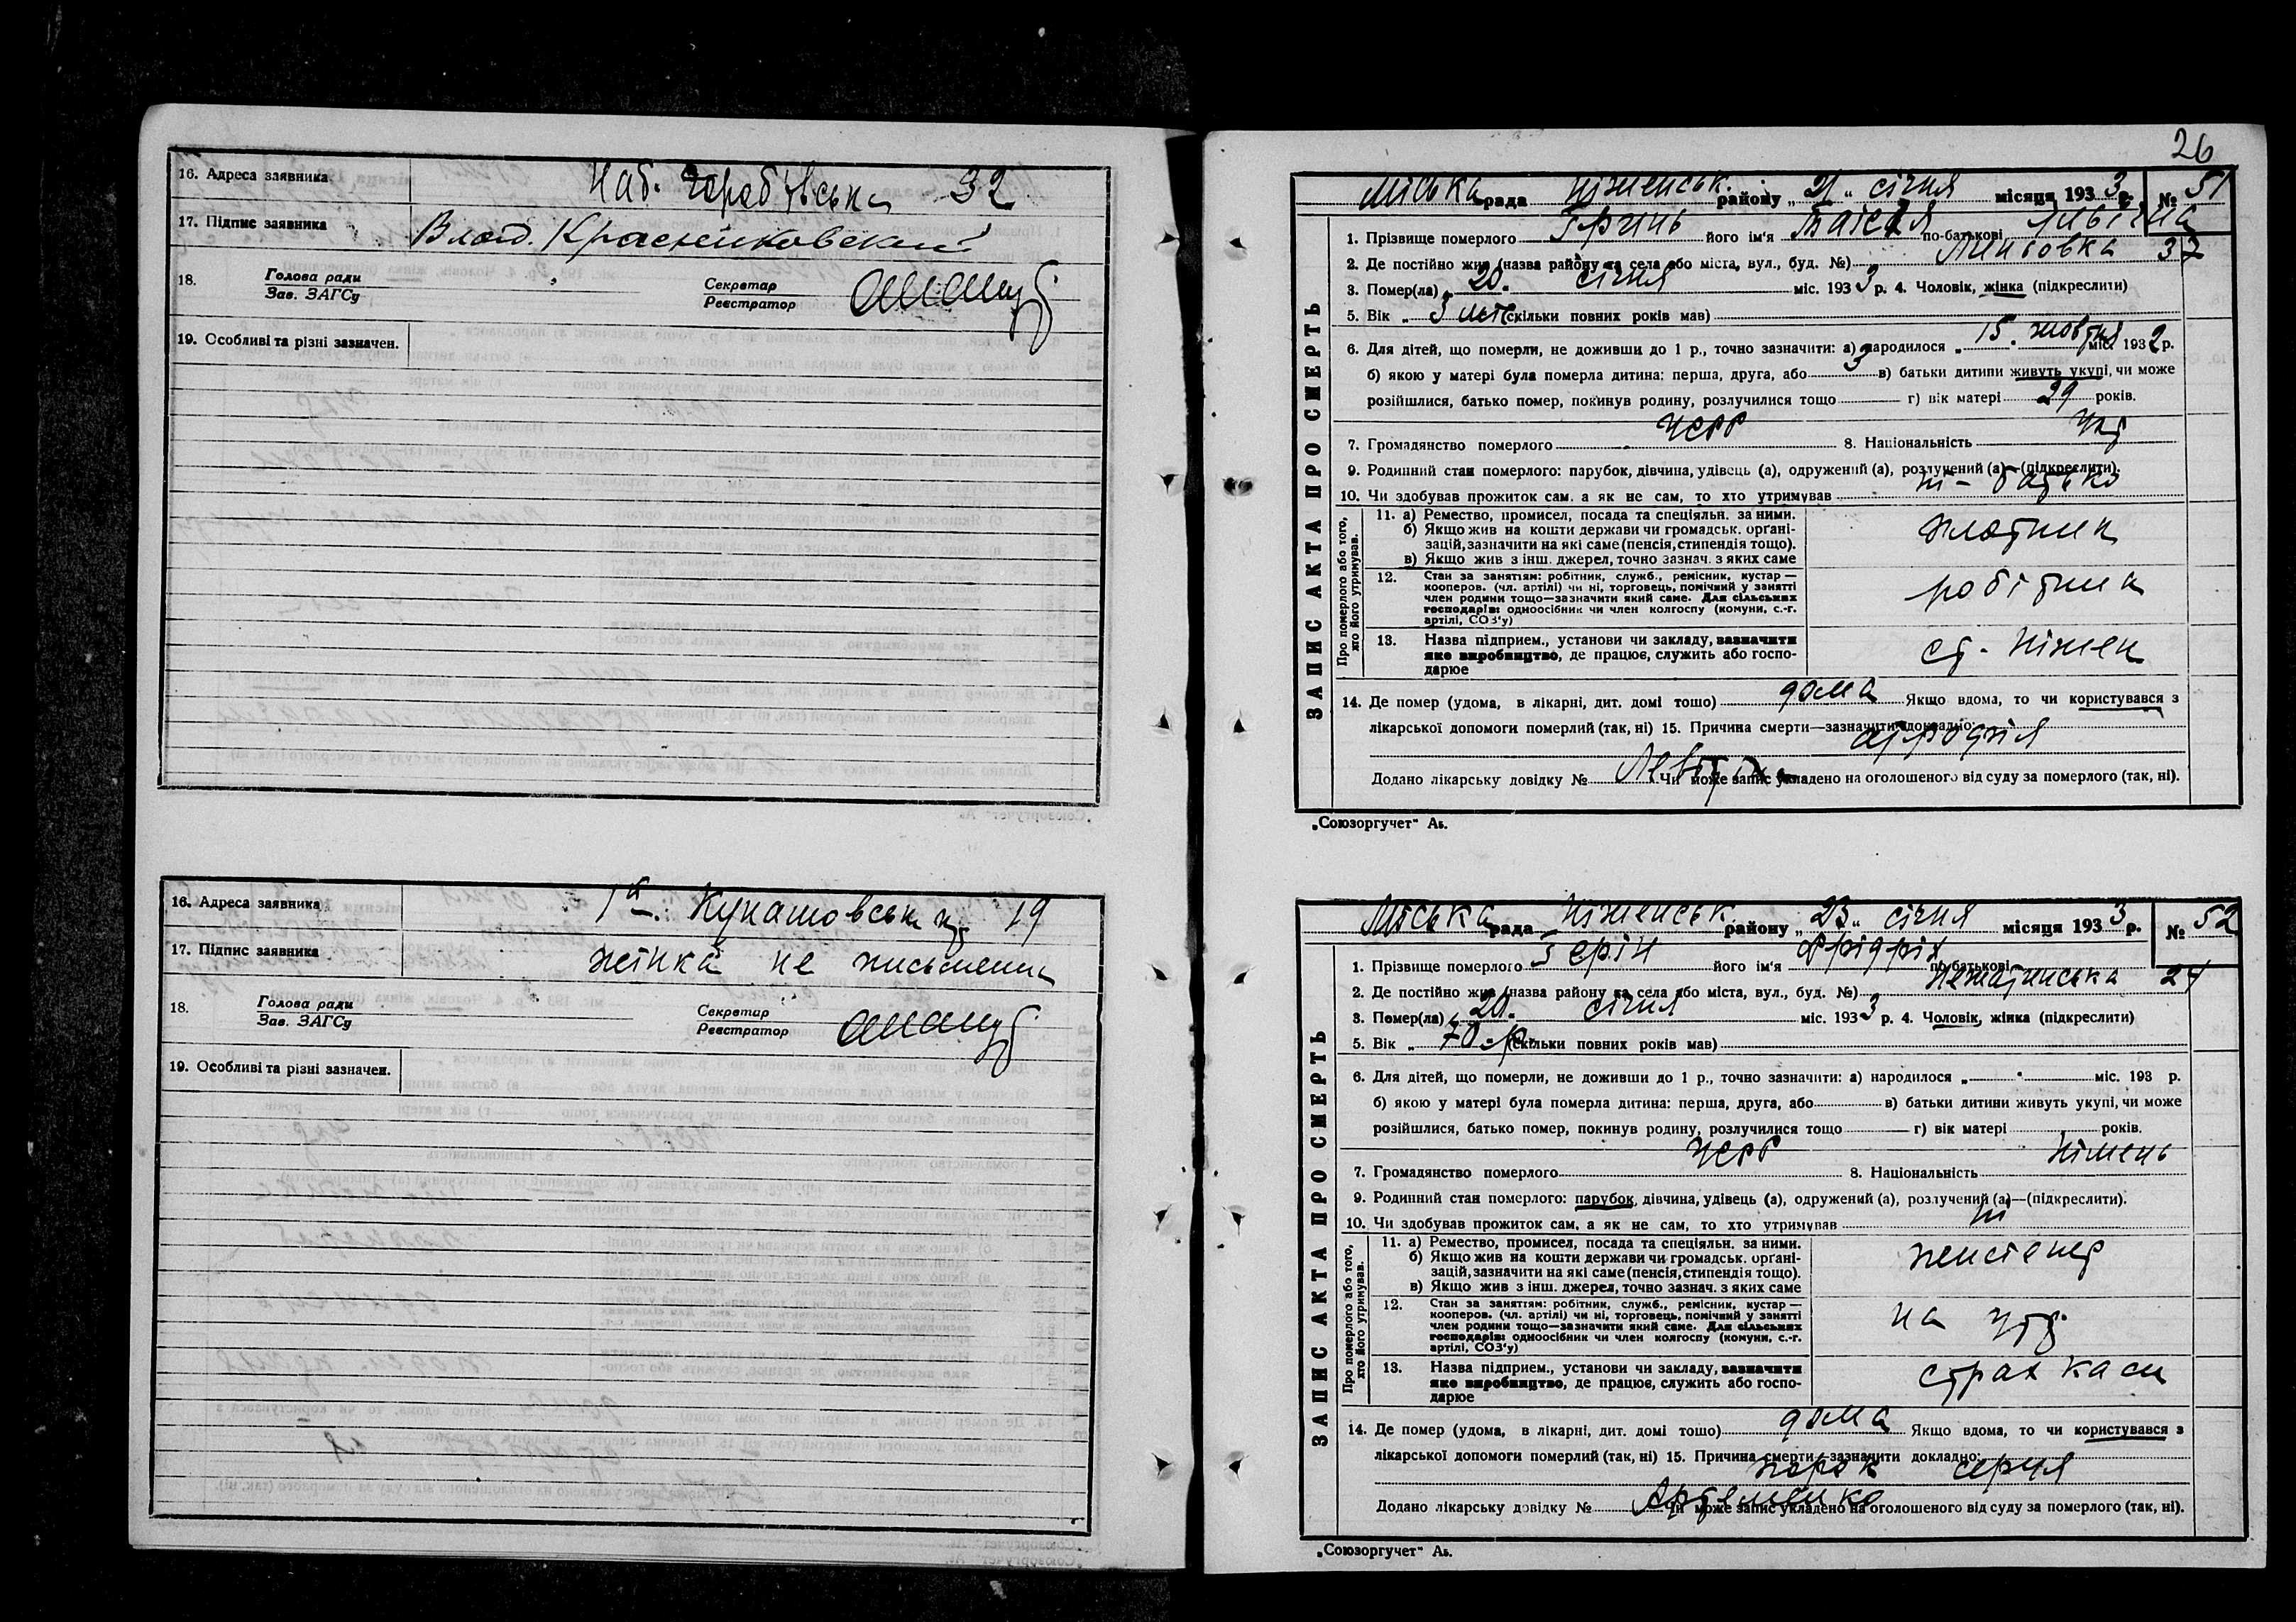 16. Адреса заявника Наб. 32
17. Підпис заявника Влад. Красниковский
18. Голова ради Секретар
Зав. ЗАГСу Реєстратор
19. Особливі та різні зазначен.
16. Адреса заявника 1а Кунашовськ 19
17. Підпис заявника жінка не письменна
18. Голова ради Секретар
Зав. ЗАГСу Реєстратор
19. Особливі та різні зазначен.
26
ЗАПИС АКТА ПРО СМЕРТЬ
Міська рада Ніженськ. району „21“ січня місяця 1933 р. № 51
1. Прізвище померлого Грінь його ім'я Таїсія по-батькові
2. Де постійно жив (назва району та села або міста, вул., буд. №) 37
3. Помер(ла) „20. січня міс. 1933 р. 4. Чоловік, жінка (підкреслити)
5. Вік „ 3 міс. (скільки повних років мав)
6. Для дітей, що померли, не доживши до 1 р., точно зазначити: а) народилося „15. жовтня міс. 1932 р.
б) якою у матері була померла дитина: перша, друга, або 3 в) батьки дитини живуть укупі, чи може
розійшлися, батько помер, покинув родину, розлучилися тощо г) вік матері 29 років.
7. Громадянство померлого УСРР 8. Національність Укр
9. Родинний стан померлого: парубок, дівчина, удівець (а), одружений (а), розлучений (а)—(підкреслити).
10. Чи здобував прожиток сам, а як не сам, то хто утримував ні - батько
Про померлого або того, хто його утримував.
11. а) Ремество, промисел, посада та спеціяльн. за ними.
б) Якщо жив на кошти держави чи громадськ. орґані-
зацій, зазначити на які саме (пенсія, стипендія тощо).
в) Якщо жив з інш. джерел, точно зазнач. з яких саме
плотник
12. Стан за заняттям: робітник, служб., ремісник, кустар —
кооперов. (чл. артілі) чи ні, торговець, помічний у занятті
член родини тощо—зазначити який саме. Для сільських
господарів: одноосібник чи член колгоспу (комуни, с.-г.
артілі, СОЗ'у)
робітник
13. Назва підприєм., установи чи закладу, зазначити
яке виробництво, де працює, служить або госпо-
дарює
ст. Ніжен
14. Де помер (удома, в лікарні, дит. домі тощо) дома Якщо вдома, то чи користувався з
лікарської допомоги померлий (так, ні) 15. Причина смерти—зазначити докладно:
атрофія
Додано лікарську довідку № Чи може запис укладено на оголошеного від суду за померлого (так, ні).
„Союзоргучет“ Аь.
ЗАПИС АКТА ПРО СМЕРТЬ
Міська рада Ніженськ. району „23“ січня місяця 1933 р. № 52
1. Прізвище померлого Герін його ім'я Фрідріх по-батькові
2. Де постійно жив (назва району та села або міста, вул., буд. №)
3. Помер(ла) „20. січня міс. 1933 р. 4. Чоловік, жінка (підкреслити)
5. Вік „ 70 р. (скільки повних років мав)
6. Для дітей, що померли, не доживши до 1 р., точно зазначити: а) народилося „ “ міс. 193 р.
б) якою у матері була померла дитина: перша, друга, або в) батьки дитини живуть укупі, чи може
розійшлися, батько помер, покинув родину, розлучилися тощо г) вік матері років.
7. Громадянство померлого УСРР 8. Національність Німець
9. Родинний стан померлого: парубок, дівчина, удівець (а), одружений (а), розлучений (а)—(підкреслити).
10. Чи здобував прожиток сам, а як не сам, то хто утримував ні
Про померлого або того, хто його утримував.
11. а) Ремество, промисел, посада та спеціяльн. за ними.
б) Якщо жив на кошти держави чи громадськ. орґані-
зацій, зазначити на які саме (пенсія, стипендія тощо).
в) Якщо жив з інш. джерел, точно зазнач. з яких саме
пенсіонер
12. Стан за заняттям: робітник, служб., ремісник, кустар —
кооперов. (чл. артілі) чи ні, торговець, помічний у занятті
член родини тощо—зазначити який саме. Для сільських
господарів: одноосібник чи член колгоспу (комуни, с.-г.
артілі, СОЗ'у)
на утр.
13. Назва підприєм., установи чи закладу, зазначити
яке виробництво, де працює, служить або госпо-
дарює
страх каси
14. Де помер (удома, в лікарні, дит. домі тощо) дома Якщо вдома, то чи користувався з
лікарської допомоги померлий (так, ні) 15. Причина смерти—зазначити докладно:
порок серця
Додано лікарську довідку № Артеменко Чи може запис укладено на оголошеного від суду за померлого (так, ні).
„Союзоргучет“ Аь.